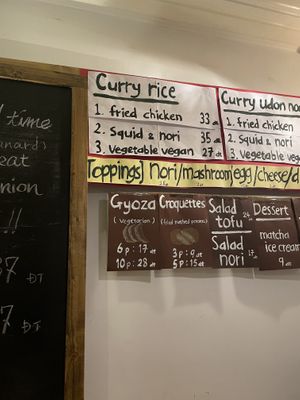 time
anard)
eat
nion
!!
7 DT
7 DT
Curry rice
1. fried chicken 33 dt
2. Squid & nori 35 dt
3. vegetable vegan 27 dt
Curry udon no
1. fried chicken
2. Squid & nori
3. vegetable veg
Toppings] nori/mashroom/egg/cheese/d
Gyoza
(vegetarian)
6p: 17 dt
10p: 28 dt
Croquettes
(fried mashed potatoes)
3p: 9 dt
5p: 15 dt
Salad
tofu
Salad
nori
Dessert
matcha
ice cream
9 dt